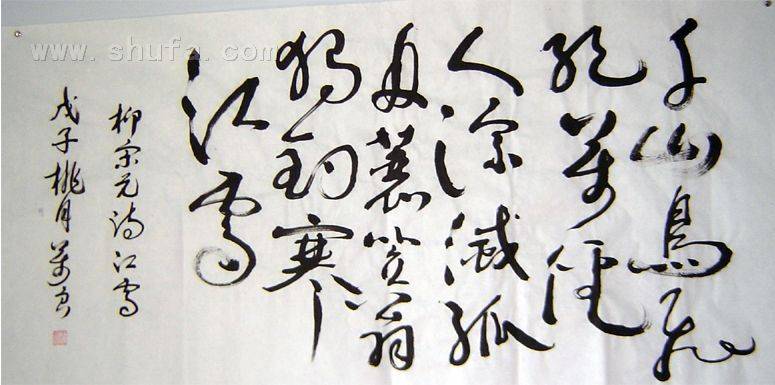 千山鳥飛
絕萬徑
人踪滅孤
舟蓑笠翁
獨釣寒
江雪
柳宗元詩江雪
戊子桃月萬
www.shufa.com